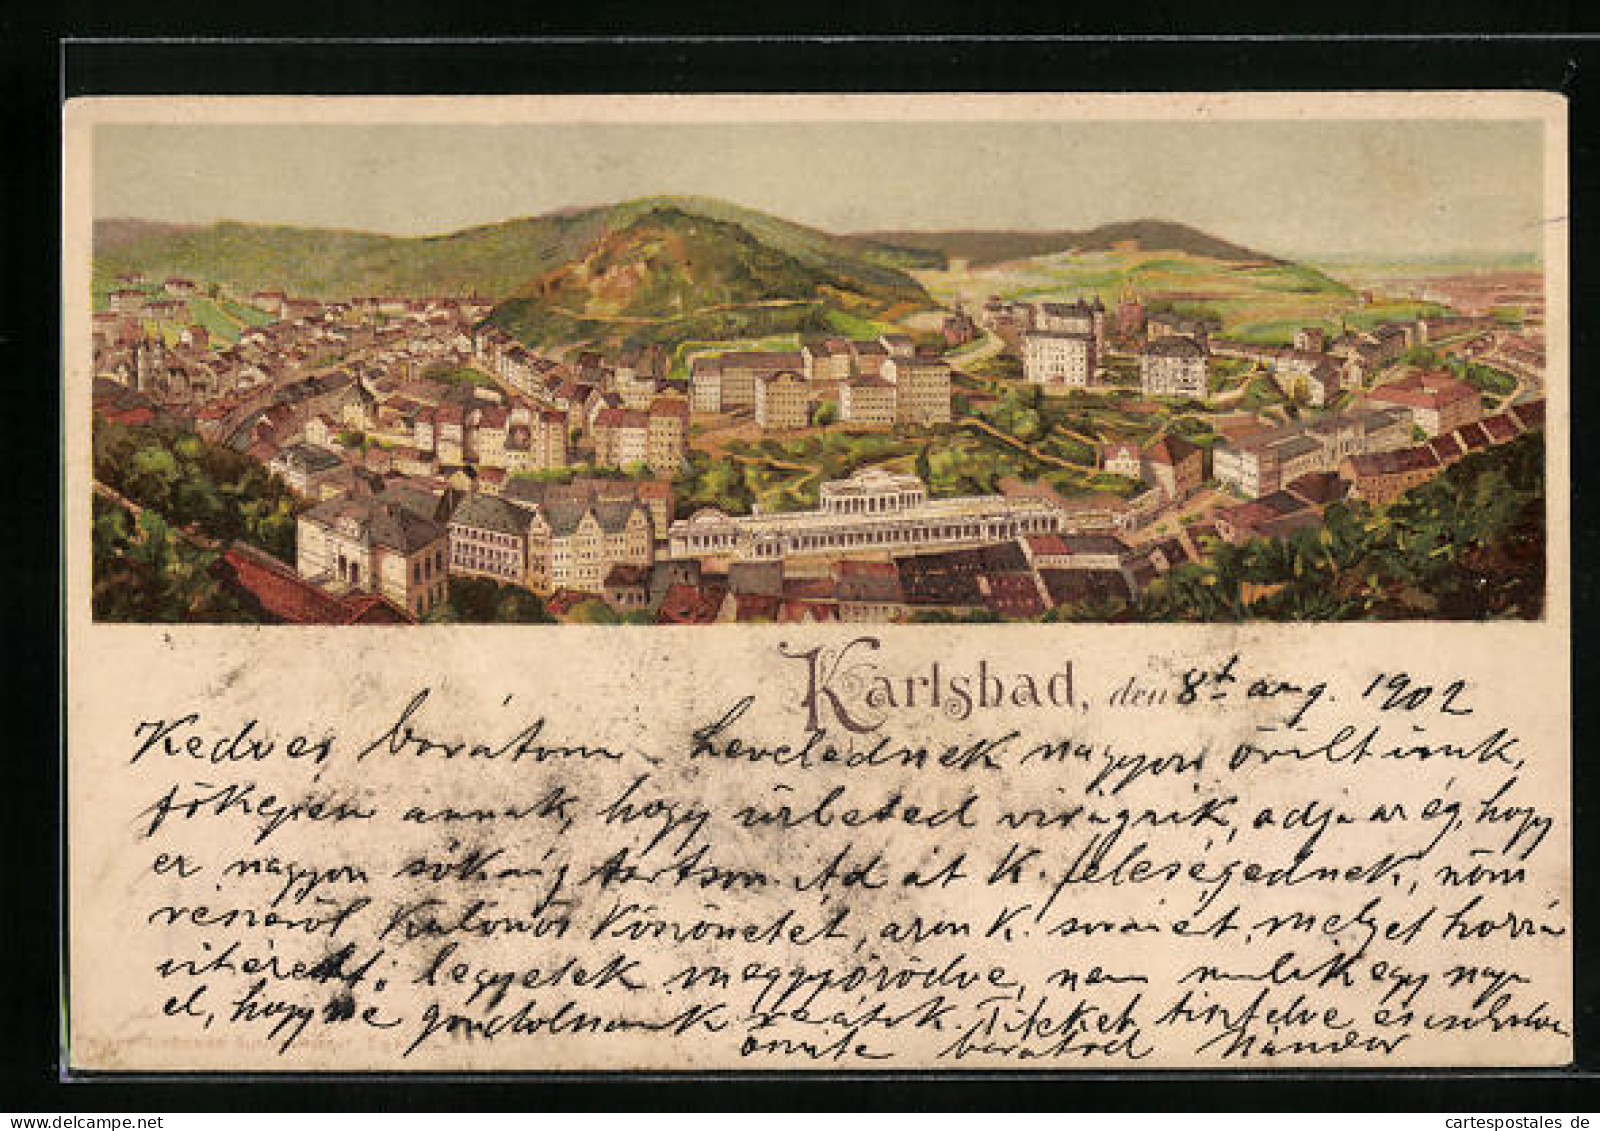 Karlsbad, den 8t aug. 1902
Kedves barátom. Levelednek nagyon örültünk,
főképen annak, hogy üzleted virágzik, adja az ég, hogy
ez nagyon sokáig tartson. Add át K. feleségednek, nőm
részéről különös köszönetet, azon K. szavaiért, melyet hozzá
intézett; legyetek meggyőződve, nem mulik egy nap
el, hogy ne gondolnánk reátok. Titeket tisztelve és csókolva
őszinte barátod Nándor
www.cartespostales.eu
cartespostales de